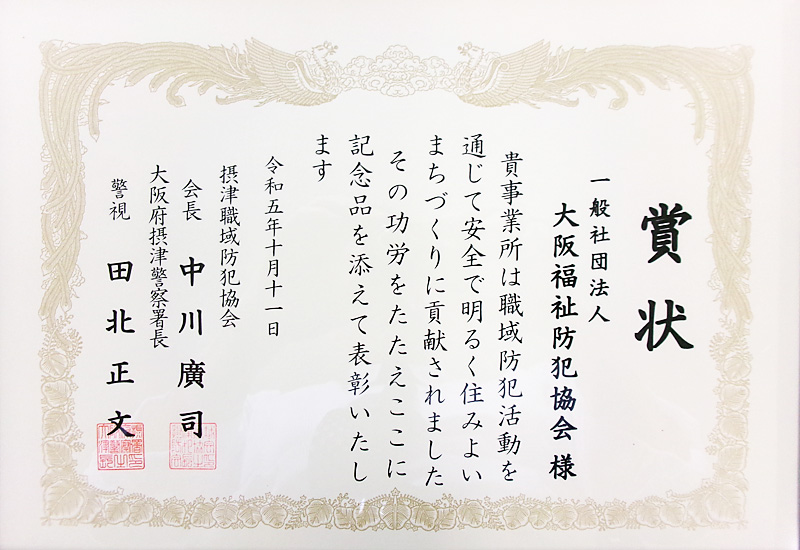 賞状
一般社団法人
大阪福祉防犯協会 様
貴事業所は職域防犯活動を
通じて安全で明るく住みよい
まちづくりに貢献されました
その功労をたたえここに
記念品を添えて表彰いたし
ます
令和五年十月十一日
摂津職域防犯協会
会長 中川廣司
大阪府摂津警察署長
警視 田北正文